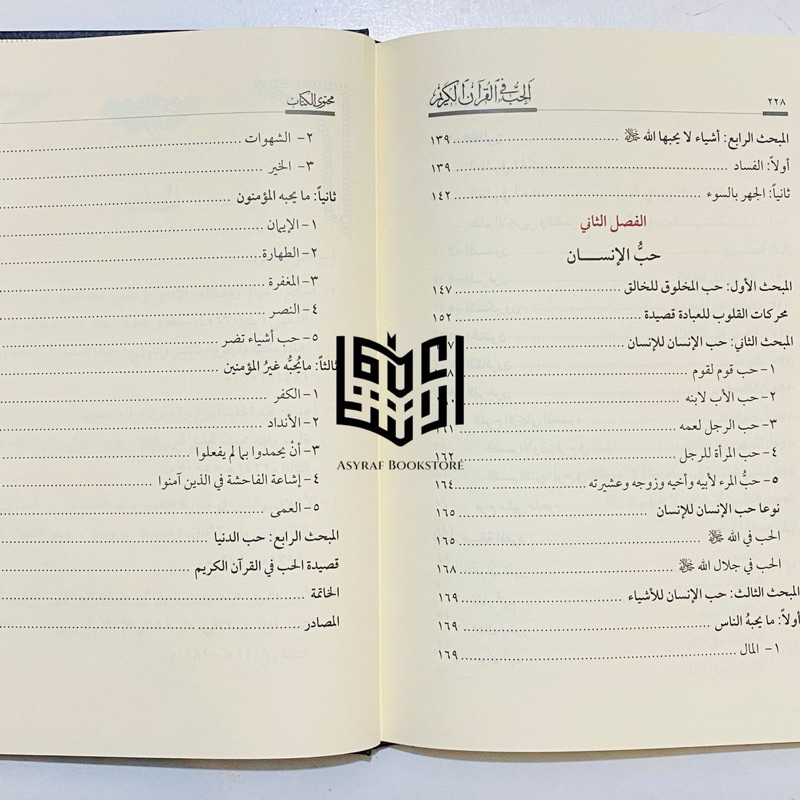 ٢٢٨
الحب في القرآن الكريم
المبحث الرابع: أشياء لا يحبها الله ﷻ ١٣٩
أولاً: الفساد ١٣٩
ثانياً: الجهر بالسوء ١٤٢
الفصل الثاني
حبُّ الإنســـان
المبحث الأول: حب المخلوق للخالق ١٤٧
محركات القلوب للعبادة قصيدة ١٥٢
المبحث الثاني: حب الإنسان للإنسان
١- حب قوم لقوم
٢- حب الأب لابنه
٣- حب الرجل لعمه
٤- حب المرأة للرجل ١٦٢
٥- حبُّ المرء لأبيه وأخيه وزوجه وعشيرته ١٦٤
نوعا حب الإنسان للإنسان ١٦٥
الحب في الله ﷻ ١٦٥
الحب في جلال الله ﷻ ١٦٨
المبحث الثالث: حب الإنسان للأشياء ١٦٩
أولاً: ما يحبهُ الناس ١٦٩
١- المال ١٦٩
محتوى الكتاب
٢- الشهوات
٣- الخير
ثانياً: ما يحبه المؤمنون
١- الإيمان
٢- الطهارة
٣- المغفرة
٤- النصر
٥- حب أشياء تضر
ثالثاً: ما يُحبُّه غيرُ المؤمنين
١- الكفر
٢- الأنداد
٣- أنْ يحمدوا بما لم يفعلوا
٤- إشاعة الفاحشة في الذين آمنوا
٥- العمى
المبحث الرابع: حب الدنيا
قصيدة الحب في القرآن الكريم
الخاتمة
المصادر
ASYRAF BOOKSTORE